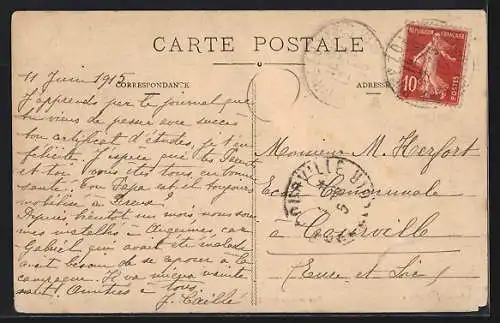 CARTE POSTALE
CORRESPONDANCE
ADRESSE
RÉPUBLIQUE FRANÇAISE
10
POSTES
11 Juin 1915
J'apprends par le journal que
tu viens de passer avec succès
ton certificat d'études, je t'en
félicite. J'espère que tes Parents
et toi vous êtes tous en bonne
santé. Ton Papa est-il toujours
mobilisé à Dreux?
Depuis bientôt un mois, nous sommes
installés à
Gabriel qui avait été malade
avait besoin de se reposer à la
campagne. Il va mieux maintenant.
Amitiés à tous.
J. Caillé
Monsieur M. Herfort
Ecole Communale
à Courville
(Eure et Loir)
COURVILLE